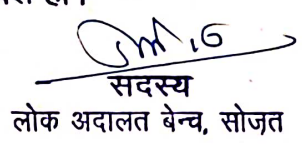 सदस्य
लोक अदालत बेन्च, सोजत